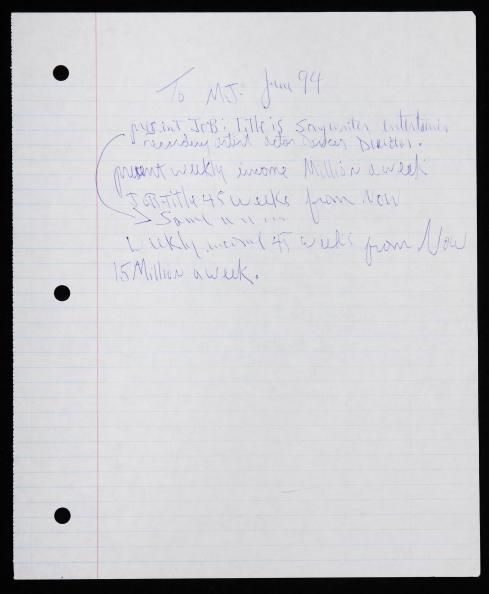 To MJ. June 94
present JoB: Title is Songwriter entertainer
recording artist actor Dancer Director.
present weekly income Million a week
JoB-Title 45 weeks from Now
Same " " " "
weekly income 45 weeks from Now
15 Million a week.